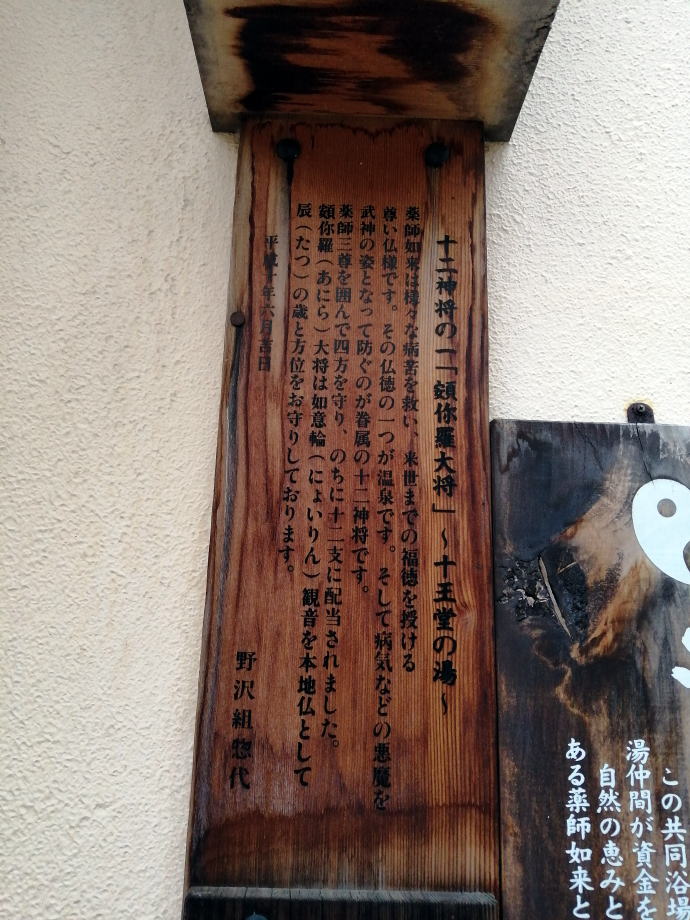 十二神将の一「頞你羅大将」～十王堂の湯～
薬師如来は様々な病苦を救い、来世までの福徳を授ける
尊い仏様です。その仏徳の一つが温泉です。そして病気などの悪魔を
武神の姿となって防ぐのが眷属の十二神将です。
薬師三尊を囲んで四方を守り、のちに十二支に配当されました。
頞你羅（あにら）大将は如意輪（にょいりん）観音を本地仏として
辰（たつ）の歳と方位をお守りしております。
平成十年六月吉日
野沢組惣代
この共同浴場
湯仲間が資金を
自然の恵みと
ある薬師如来と